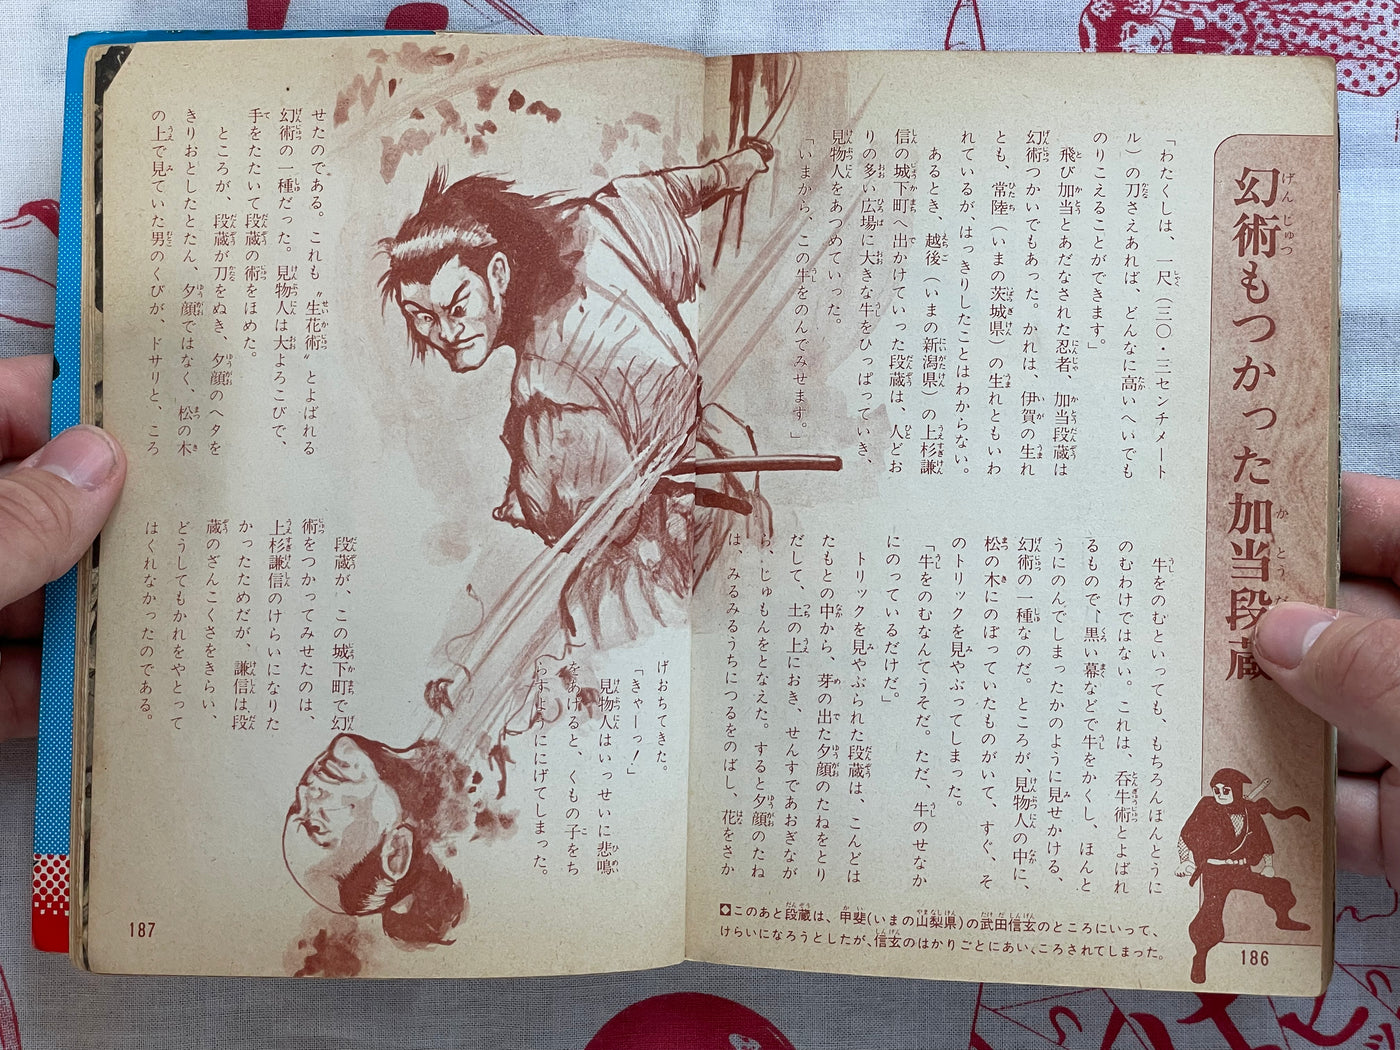 幻術もつかった加当段蔵
「わたくしは、一尺(三〇・三センチメート
ル)の刀さえあれば、どんなに高いへいでも
のりこえることができます。」
飛び加当とあだなされた忍者、加当段蔵は
幻術つかいでもあった。かれは、伊賀の生れ
とも、常陸(いまの茨城県)の生れともいわ
れているが、はっきりしたことはわからない。
あるとき、越後(いまの新潟県)の上杉謙
信の城下町へ出かけていった段蔵は、人どお
りの多い広場に大きな牛をひっぱっていき、
見物人をあつめていった。
「いまから、この牛をのんでみせます。」
牛をのむといっても、もちろんほんとうに
のむわけではない。これは、呑牛術とよばれ
るもので、黒い幕などで牛をかくし、ほんと
うにのんでしまったかのように見せかける、
幻術の一種なのだ。ところが、見物人の中に、
松の木にのぼっていたものがいて、すぐ、そ
のトリックを見やぶってしまった。
「牛をのむなんてうそだ。ただ、牛のせなか
にのっているだけだ。」
トリックを見やぶられた段蔵は、こんどは
たもとの中から、芽の出た夕顔のたねをとり
だして、土の上におき、せんすであおぎなが
ら、じゅもんをとなえた。すると夕顔のたね
は、みるみるうちにつるをのばし、花をさか
◆このあと段蔵は、甲斐(いまの山梨県)の武田信玄のところにいって、
けらいになろうとしたが、信玄のはかりごとにあい、ころされてしまった。
186
せたのである。これも〝生花術〟とよばれる
幻術の一種だった。見物人は大よろこびで、
手をたたいて段蔵の術をほめた。
ところが、段蔵が刀をぬき、夕顔のヘタを
きりおとしたとたん、夕顔ではなく、松の木
の上で見ていた男のくびが、ドサリと、ころ
げおちてきた。
「きゃーっ!」
見物人はいっせいに悲鳴
をあげると、くもの子をち
らすようににげてしまった。
段蔵が、この城下町で幻
術をつかってみせたのは、
上杉謙信のけらいになりた
かったためだが、謙信は段
蔵のざんこくさをきらい、
どうしてもかれをやとって
はくれなかったのである。
187